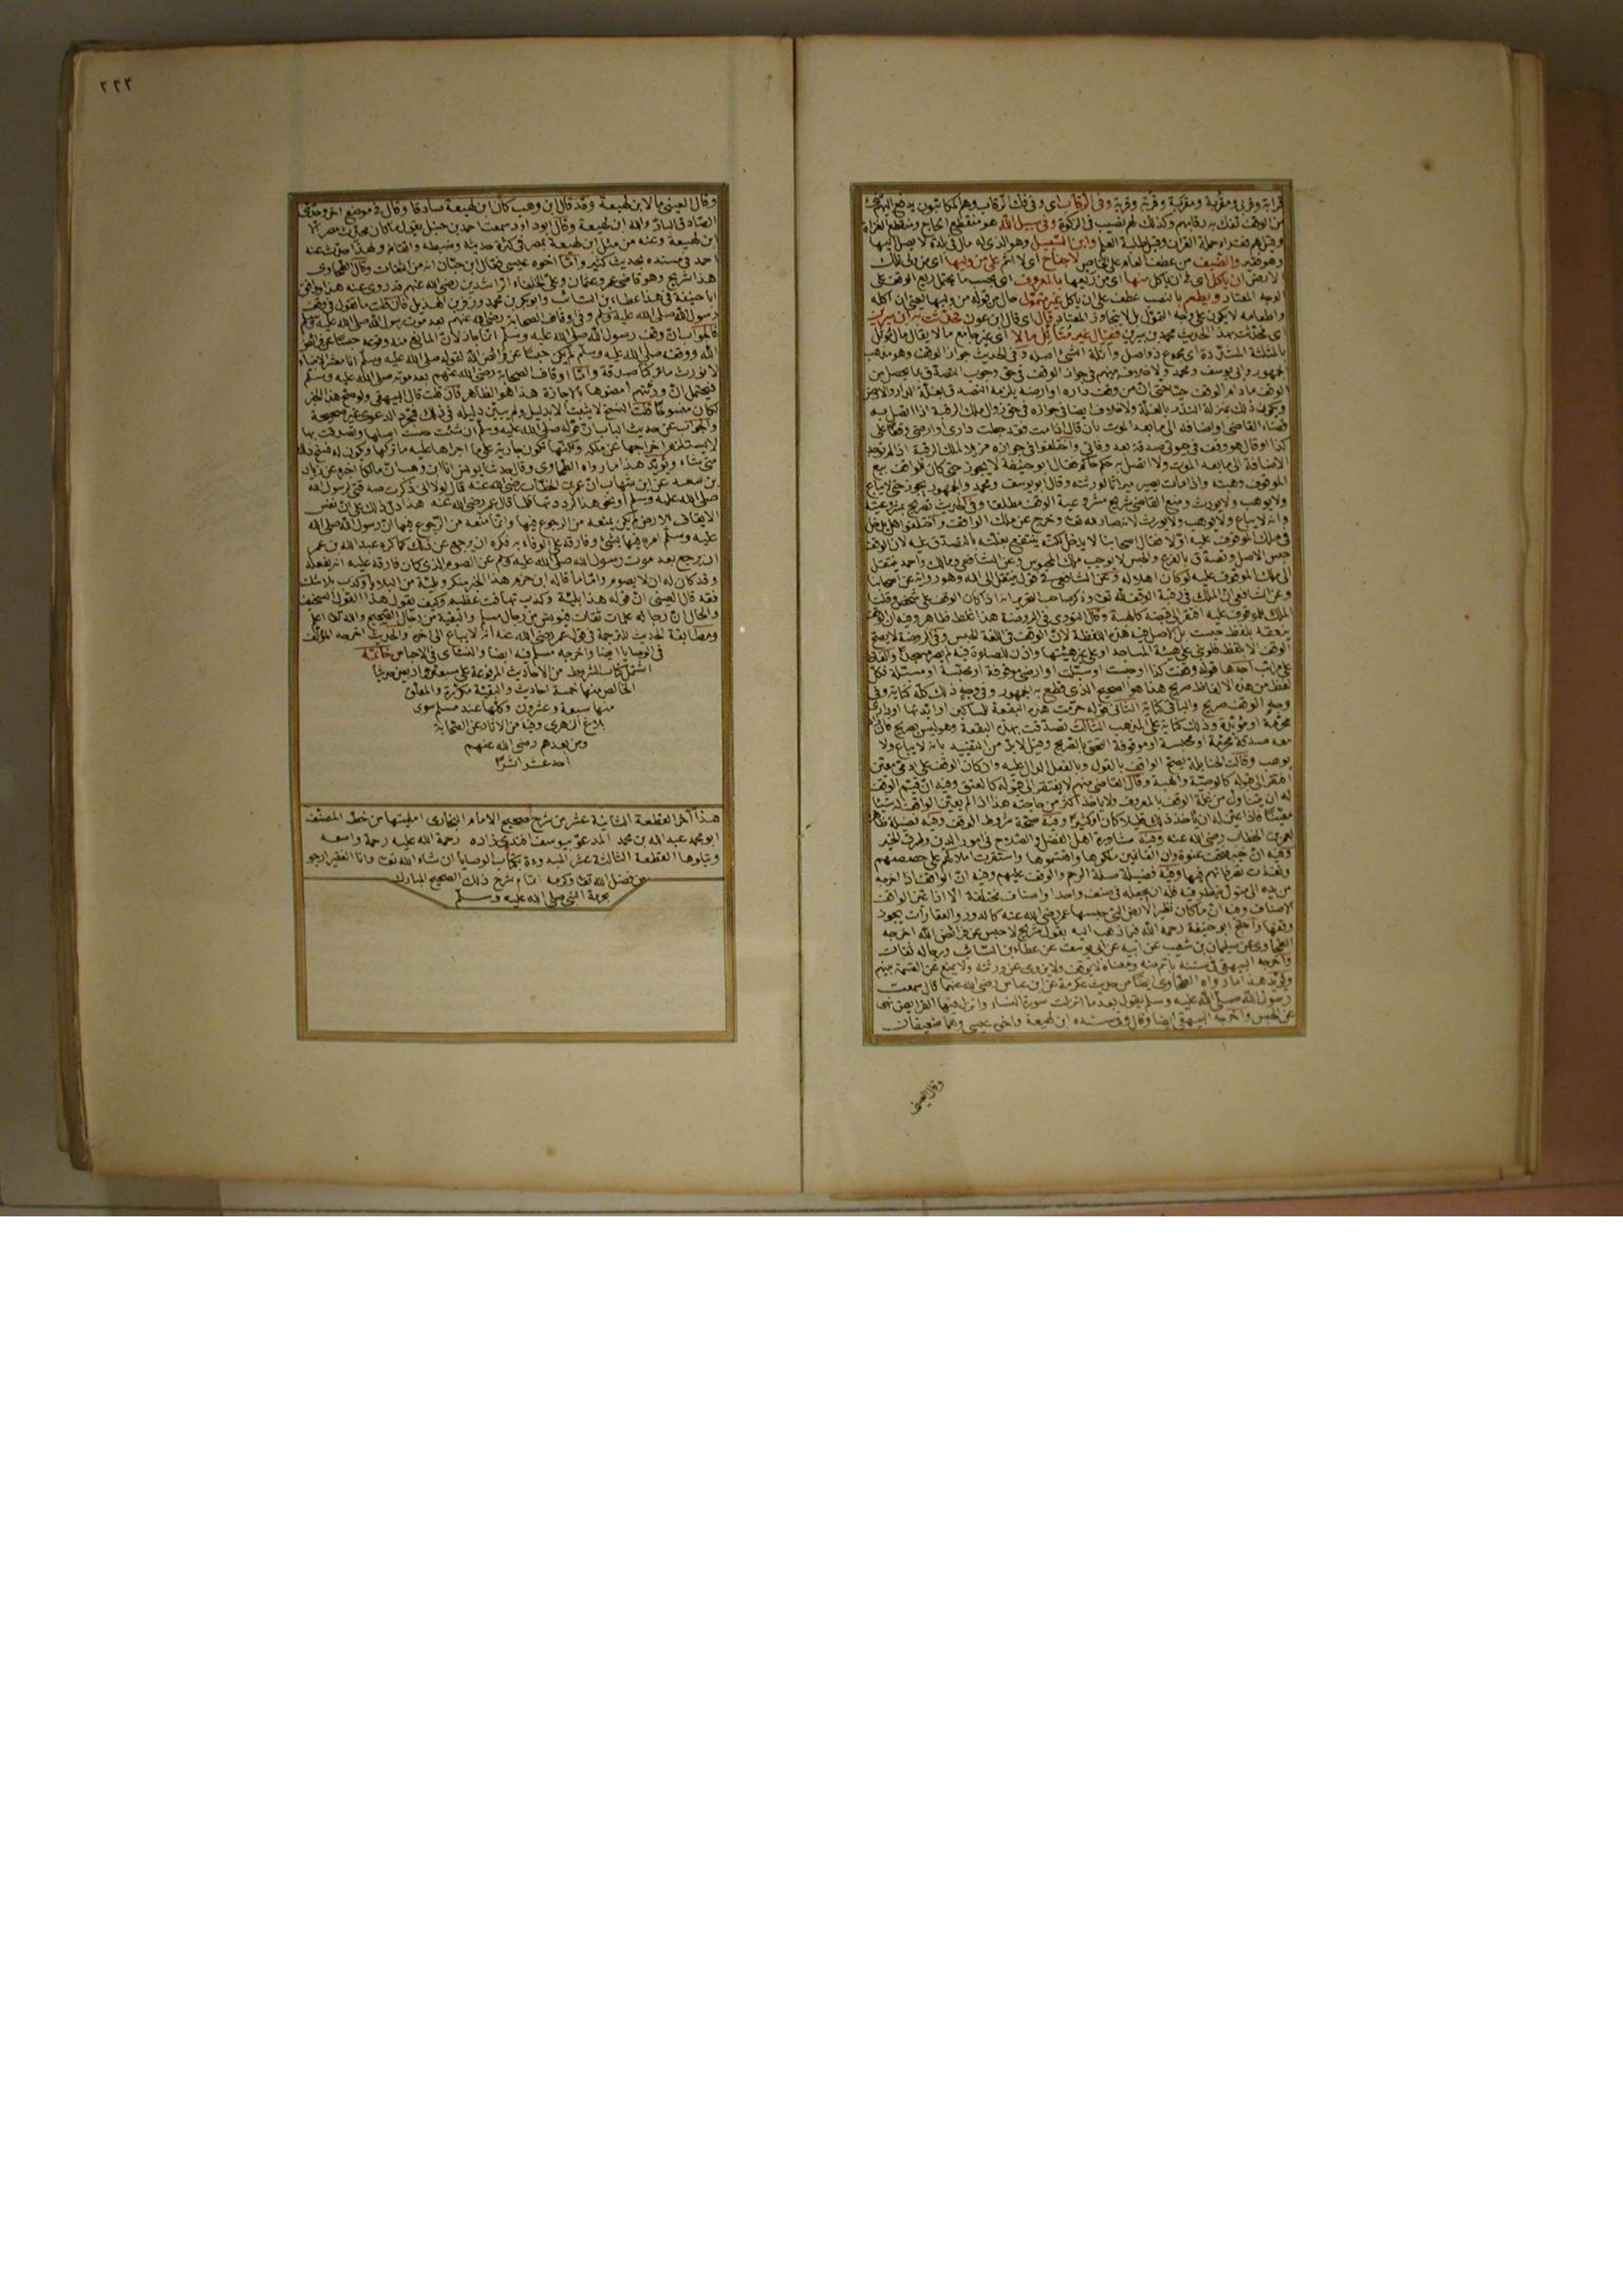 قرابة وقربى ومقربة ومقربة وقربة وقربة وفى الرقاب اى وفى فك الرقاب وهم المكاتبون يدفع اليهم شئ
من الوقف تفك به رقابهم وكذلك لهم نصيب فى الزكوة وفى سبيل الله هو منقطع الحاج ومنقطع الغزاة
وقيل هم فقراء حملة القرآن وقيل طلبة العلم وابن السبيل وهو الذى له مال فى بلدة لا يصل اليها
وهو فقير والضيف من عطف العام على الخاص لا جناح اى لا اثم على من وليها اى من ولى تلك
الارض ان يأكل اى فى ان يأكل منها اى من ريعها بالمعروف اى بحسب ما يحتمل ريع الوقف على
الوجه المعتاد ويطعم بالنصب عطف على ان يأكل غير متمول حال من قوله من وليها يعنى ان اكله
واطعامه لا يكون على وجه التمول بل لا يتجاوز المعتاد قال اى قال ابن عون فحدثت به ابن سيرين
اى فحدثت بهذا الحديث محمد بن سيرين فقال غير متأثل مالا اى غير جامع مالا يقال مال مؤثل
بالمثلثة المشددة اى مجموع ذو اصل وأثلة الشئ اصله وفى الحديث جواز الوقف وهو مذهب
الجمهور وابى يوسف ومحمد ولا خلاف بينهم فى جواز الوقف فى حق وجوب التصدق بما يحصل من
الوقف ما دام الوقف حيا حتى ان من وقف داره او ارضه يلزمه التصدق بغلة الدار والارض
ويكون ذلك بمنزلة النذر بالغلة ولا خلاف ايضا فى جوازه فى حق زوال ملك الرقبة اذا اتصل به
قضاء القاضى او اضافه الى ما بعد الموت بان قال اذا مت فقد جعلت دارى او ارضى وقفا على
كذا او قال هو وقف فى حيوتى صدقة بعد وفاتى واختلفوا فى جوازه مزيلا لملك الرقبة اذا لم توجد
الاضافة الى ما بعد الموت ولا اتصل به حكم حاكم فقال ابو حنيفة لا يجوز حتى كان للواقف بيع
الموقوف وهبته واذا مات يصير ميراثا لورثته وقال ابو يوسف ومحمد والجمهور يجوز حتى لا يباع
ولا يوهب ولا يورث
وانه لا يباع ولا يوهب ولا يورث لانه صار لله تعالى وخرج عن ملك الواقف واختلفوا هل يدخل
فى ملك الموقوف عليه اولا فقال اصحابنا لا يدخل لكنه ينتفع بغلته بالتصدق عليه لان الوقف
حبس الاصل وتصدق بالفرع والحبس لا يوجب ملك المحبوس وعن الشافعى ومالك واحمد ينتقل
الى ملك الموقوف عليه لو كان اهلا له وعن الشافعى فى قول ينتقل الى الله وهو رواية عن اصحابنا
الملك للموقوف عليه افتقر الى قبضه كالهبة وقال النووى فى الروضة هذا غلط ظاهر وفيه ان الوقف
ينعقد بلفظ حبست بل الاصل فيه هذه اللفظة لان الوقف فى اللغة الحبس وفى الروضة لا يصح
الوقف الا بلفظ فلو بنى على هيئة المساجد او على غير هيئتها واذن للصلوة فيه لم يصر مسجدا والفاظه
على مراتب احدها قوله وقفت كذا او حبست او سبلت او ارضى موقوفة او محبسة او مسبلة فكل
لفظ من هذه الالفاظ صريح هذا هو الصحيح الذى قطع به الجمهور وفى وجه ذلك كله كناية وفى
وجه الوقف صريح والباقى كناية الثانى قوله حرمت هذه البقعة للمساكين او ابدتها او دارى
محرمة او مؤبدة وذلك كناية على المذهب الثالث تصدقت بهذه البقعة وهو ليس بصريح فان زاد
معه صدقة محرمة او محبسة او موقوفة التحق بالصريح وقيل لا بد من التقييد بانه لا يباع ولا
يوهب وقالت الحنابلة يصح الوقف بالقول وبالفعل الدال عليه وان كان الوقف على آدمى معين
افتقر الى قبوله كالوصية والهبة وقال القاضى منهم لا يفتقر الى قبوله كالعتق وفيه ان قيم الوقف
له ان يتناول من غلة الوقف بالمعروف ولا يأخذ اكثر من حاجته هذا اذا لم يعين الواقف له شيئا
معينا فاذا عين له ان يأخذ ذلك قليلا كان او كثيرا وفيه صحة شروط الوقف وفيه فضيلة ظاهرة
لعمر بن الخطاب رضى الله عنه وفيه مشاورة اهل الفضل والصلاح فى امور الدين وطرق الخير
وفيه ان خيبر فتحت عنوة وان الغانمين ملكوها واقتسموها واستقرت املاكهم على حصصهم
ونفذت تصرفاتهم فيها وفيه فضيلة صلة الرحم والوقف عليهم وفيه ان الواقف اذا اخرجه
من يده الى متولى ينظر فيه فله ان يجعله فى صنف واحد او اصناف مختلفة الا اذا عين الواقف
الاصناف وفيه ان ما كان نظير الارض التى حبسها عمر رضى الله عنه كالدور والعقارات يجوز
وقفها واحتج ابو حنيفة رحمه الله فيما ذهب اليه بقول شريح لا حبس عن فرائض الله اخرجه
الطحاوى عن سليمان بن شعيب عن ابيه عن ابى يوسف عن عطاء بن السائب ورجاله ثقات
واخرجه البيهقى فى سننه باتم منه ومعناه لا يوقف ولا يزوى عن ورثته ولا يمنع عن القسمة بينهم
ويؤيد هذا ما رواه الطحاوى ايضا من حديث عكرمة عن ابن عباس رضى الله عنهما قال سمعت
رسول الله صلى الله عليه وسلم يقول بعد ما انزلت سورة النساء وانزل فيها الفرائض نهى
عن الحبس واخرجه البيهقى ايضا وقال وفى سنده ابن لهيعة واخى عيسى وهما ضعيفان
وقال العينى
٢٢٣
وقال العينى ما لابن لهيعة وقد قال ابن وهب كان ابن لهيعة صادقا وقال فى موضع اخر وحدثنى
الصادق البار والله ابن لهيعة وقال ابو داود سمعت احمد بن حنبل يقول ما كان محدث مصر الا
ابن لهيعة وعنه من مثل ابن لهيعة بمصر فى كثرة حديثه وضبطه واتقانه ولهذا حدث عنه
احمد فى مسنده بحديث كثير واما اخوه عيسى فقال ابن حبان انه من الثقات وقال الطحاوى
هذا شريح وهو قاضى عمر وعثمان وعلى الخلفاء الراشدين رضى الله عنهم قد روى عنه هذا ووافق
ابا حنيفة فى هذا عطاء بن السائب وابو بكر بن محمد وزفر بن الهذيل فان قلت ما تقول فى وقف
رسول الله صلى الله عليه وسلم وفى اوقاف الصحابة رضى الله عنهم بعد موت رسول الله صلى الله عليه وسلم
فالجواب ان وقف رسول الله صلى الله عليه وسلم انما جاز لان المانع منه وقوعه حبسا عن فرائض
الله ووقفه صلى الله عليه وسلم لم يكن حبسا عن فرائض الله لقوله صلى الله عليه وسلم انا معشر الانبياء
لا نورث ما تركنا صدقة واما اوقاف الصحابة رضى الله عنهم بعد موته صلى الله عليه وسلم
فيحتمل ان ورثتهم امضوها بالاجازة هذا هو الظاهر فان قلت قال البيهقى ولو صح هذا الخبر
لكان منسوخا قلت النسخ لا يثبت الا بدليل ولم يبين دليله فى ذلك فمجرد الدعوى غير صحيحة
والجواب عن حديث الباب ان قوله صلى الله عليه وسلم ان شئت حبست اصلها وتصدقت بها
لا يستلزم اخراجها عن ملكه ولكنها تكون جارية على ما اجراها عليه ما تركها ويكون له فسخ ذلك
متى شاء ويؤيد هذا ما رواه الطحاوى وقال حدثنا يونس انا ابن وهب ان مالكا اخبره عن زياد
بن سعد عن ابن شهاب ان عمر بن الخطاب رضى الله عنه قال لولا انى ذكرت صدقتى لرسول الله
صلى الله عليه وسلم او نحو هذا لرددتها فلما قال عمر رضى الله عنه هذا دل ذلك على ان نفس
الايقاف للارض لم يكن يمنعه من الرجوع فيها وانما منعه من الرجوع فيها ان رسول الله صلى الله
عليه وسلم امره فيها بشئ وفارقه على الوفاء به فكره ان يرجع عن ذلك كما كره عبد الله بن عمر
ان يرجع بعد موت رسول الله صلى الله عليه وسلم عن الصوم الذى كان فارقه عليه انه يفعله
وقد كان له ان لا يصوم واما ما قاله ابن حزم هذا الخبر منكر وبلية من البلايا وكذب بلا شك
فقد قال العينى ان قوله هذا بلية وكذب تهافت عظيم وكيف يقول هذا القول السخيف
والحال ان رجاله علماء ثقات فيونس من رجال مسلم والبقية من رجال الصحيح والله تعالى اعلم
ومطابقة الحديث للترجمة فى قول عمر رضى الله عنه انه لا يباع الى اخره والحديث اخرجه المؤلف
فى الوصايا ايضا واخرجه مسلم فيه ايضا والنسائى فى الاحباس خاتمة
اشتمل كتاب الشروط من الاحاديث المرفوعة على سبعة واربعين حديثا
الخالص منها خمسة احاديث والبقية مكررة والمعلق
منها سبعة وعشرون وكلها عند مسلم سوى
بلاغ الزهرى وفيه من الآثار عن الصحابة
ومن بعدهم رضى الله عنهم
احد عشر اثرا
هذا آخر القطعة الثانية عشر من شرح صحيح الامام البخارى امليتها من خط المصنف
ابو محمد عبد الله بن محمد المدعو بيوسف افندى زاده رحمة الله عليه رحمة واسعه
ويتلوها القطعة الثالثة عشر المبدوءة بكتاب الوصايا ان شاء الله تعالى وانا الفقير ارجو
من فضل الله تعالى وكرمه اتمام شرح ذلك الصحيح المبارك
بحرمة النبى صلى الله عليه وسلم